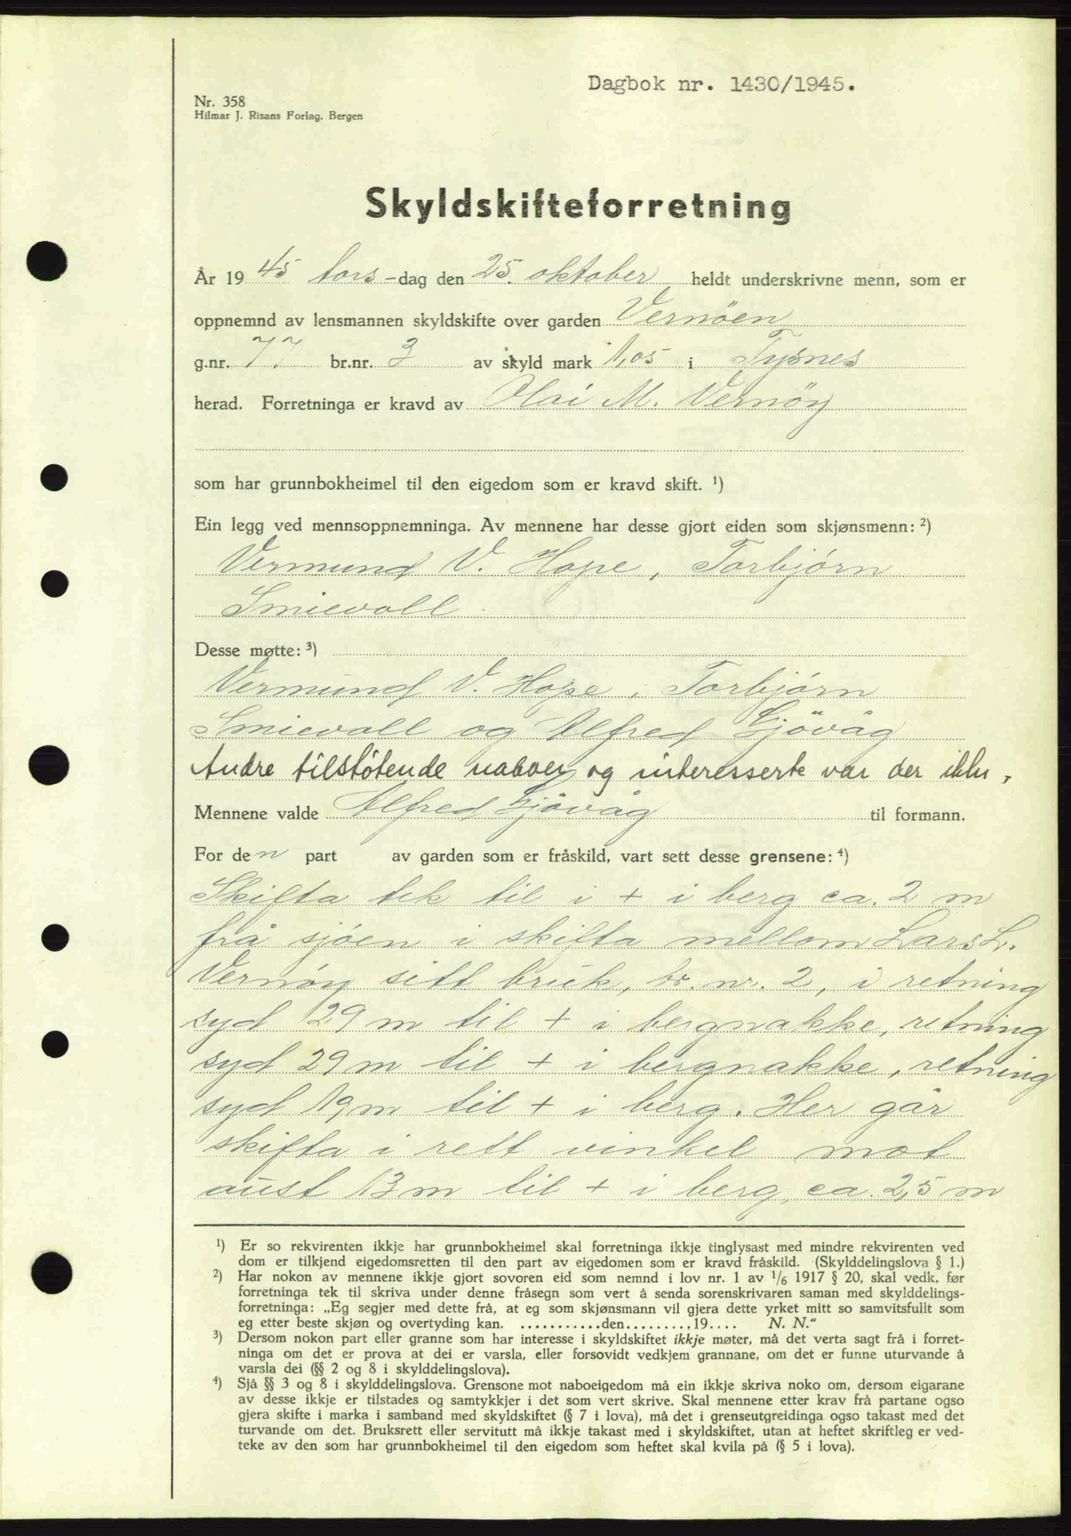 Dagbok nr. 1430/1945.
Nr. 358
Hilmar J. Risans Forlag, Bergen
Skyldskifteforretning
År 19 45 tors-dag den 25. oktober heldt underskrivne menn, som er
oppnemnd av lensmannen skyldskifte over garden Vernöen
g.nr. 77 br.nr. 3 av skyld mark 1,05 i Tysnes
herad. Forretninga er kravd av Olai M. Vernöy
som har grunnbokheimel til den eigedom som er kravd skift. ¹)
Ein legg ved mennsoppnemninga. Av mennene har desse gjort eiden som skjønsmenn: ²)
Vermund V. Hope, Torbjørn
Smievoll.
Desse møtte: ³)
Vermund V. Hope, Torbjørn
Smievoll og Alfred Gjövåg
Andre tilstøtende naboer og interesserte var der ikke.
Mennene valde Alfred Gjövåg til formann.
For den part av garden som er fråskild, vart sett desse grensene: ⁴)
Skifta tek til i + i berg ca. 2 m
frå sjöen i skifta mellom Lars L.
Vernöy sitt bruk, br. nr. 2, i retning
syd 29 m til + i bergnakke, retning
syd 29 m til + i bergnakke, retning
syd 19 m til + i berg. Her går
skifta i rett vinkel mot
aust 13 m til + i berg, ca. 2,5 m
¹) Er so rekvirenten ikkje har grunnbokheimel skal forretninga ikkje tinglysast med mindre rekvirenten ved
dom er tilkjend eigedomsretten til den part av eigedomen som er kravd fråskild. (Skylddelingslova § 1.)
²) Har nokon av mennene ikkje gjort sovoren eid som nemnd i lov nr. 1 av 1/6 1917 § 20, skal vedk. før
forretninga tek til skriva under denne fråsegn som vert å senda sorenskrivaren saman med skylddelings-
forretninga: „Eg segjer med dette frå, at eg som skjønsmann vil gjera dette yrket mitt so samvitsfullt som
eg etter beste skjøn og overtyding kan. ...........den.........19.... N. N.“
³) Dersom nokon part eller granne som har interesse i skyldskiftet ikkje møter, må det verta sagt frå i forret-
ninga om det er prova at dei er varsla, eller forsovidt vedkjem grannane, om det er funne uturvande å
varsla dei (§§ 2 og 8 i skylddelingslova).
⁴) Sjå §§ 3 og 8 i skylddelingslova. Grensone mot naboeigedom må ein ikkje skriva noko om, dersom eigarane
av desse ikkje er tilstades og samtykkjer i det som vert skrive. Skal mennene etter krav frå partane ogso
gjera skifte i marka i samband med skyldskiftet (§ 7 i lova), må det i grenseutgreidinga ogso takast med det
turvande om det. Bruksrett eller servitutt må ikkje takast med i skyldskiftet, utan at heftet skriftleg er ved-
teke av den som har grunnbokheimel til den eigedom som heftet skal kvila på (§ 5 i lova).